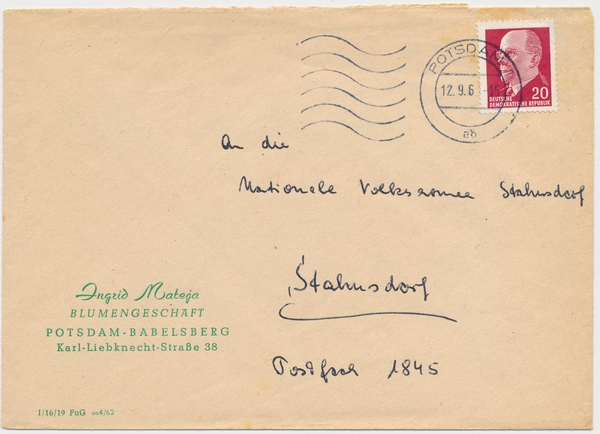 POTSDAM
12.9.6
ab
20
DEUTSCHE
DEMOKRATISCHE REPUBLIK
An die
Nationale Volksarmee Stahnsdorf
Stahnsdorf
Postfach 1845
Ingrid Mateja
BLUMENGESCHÄFT
POTSDAM-BABELSBERG
Karl-Liebknecht-Straße 38
1/16/19 FuG 004/62